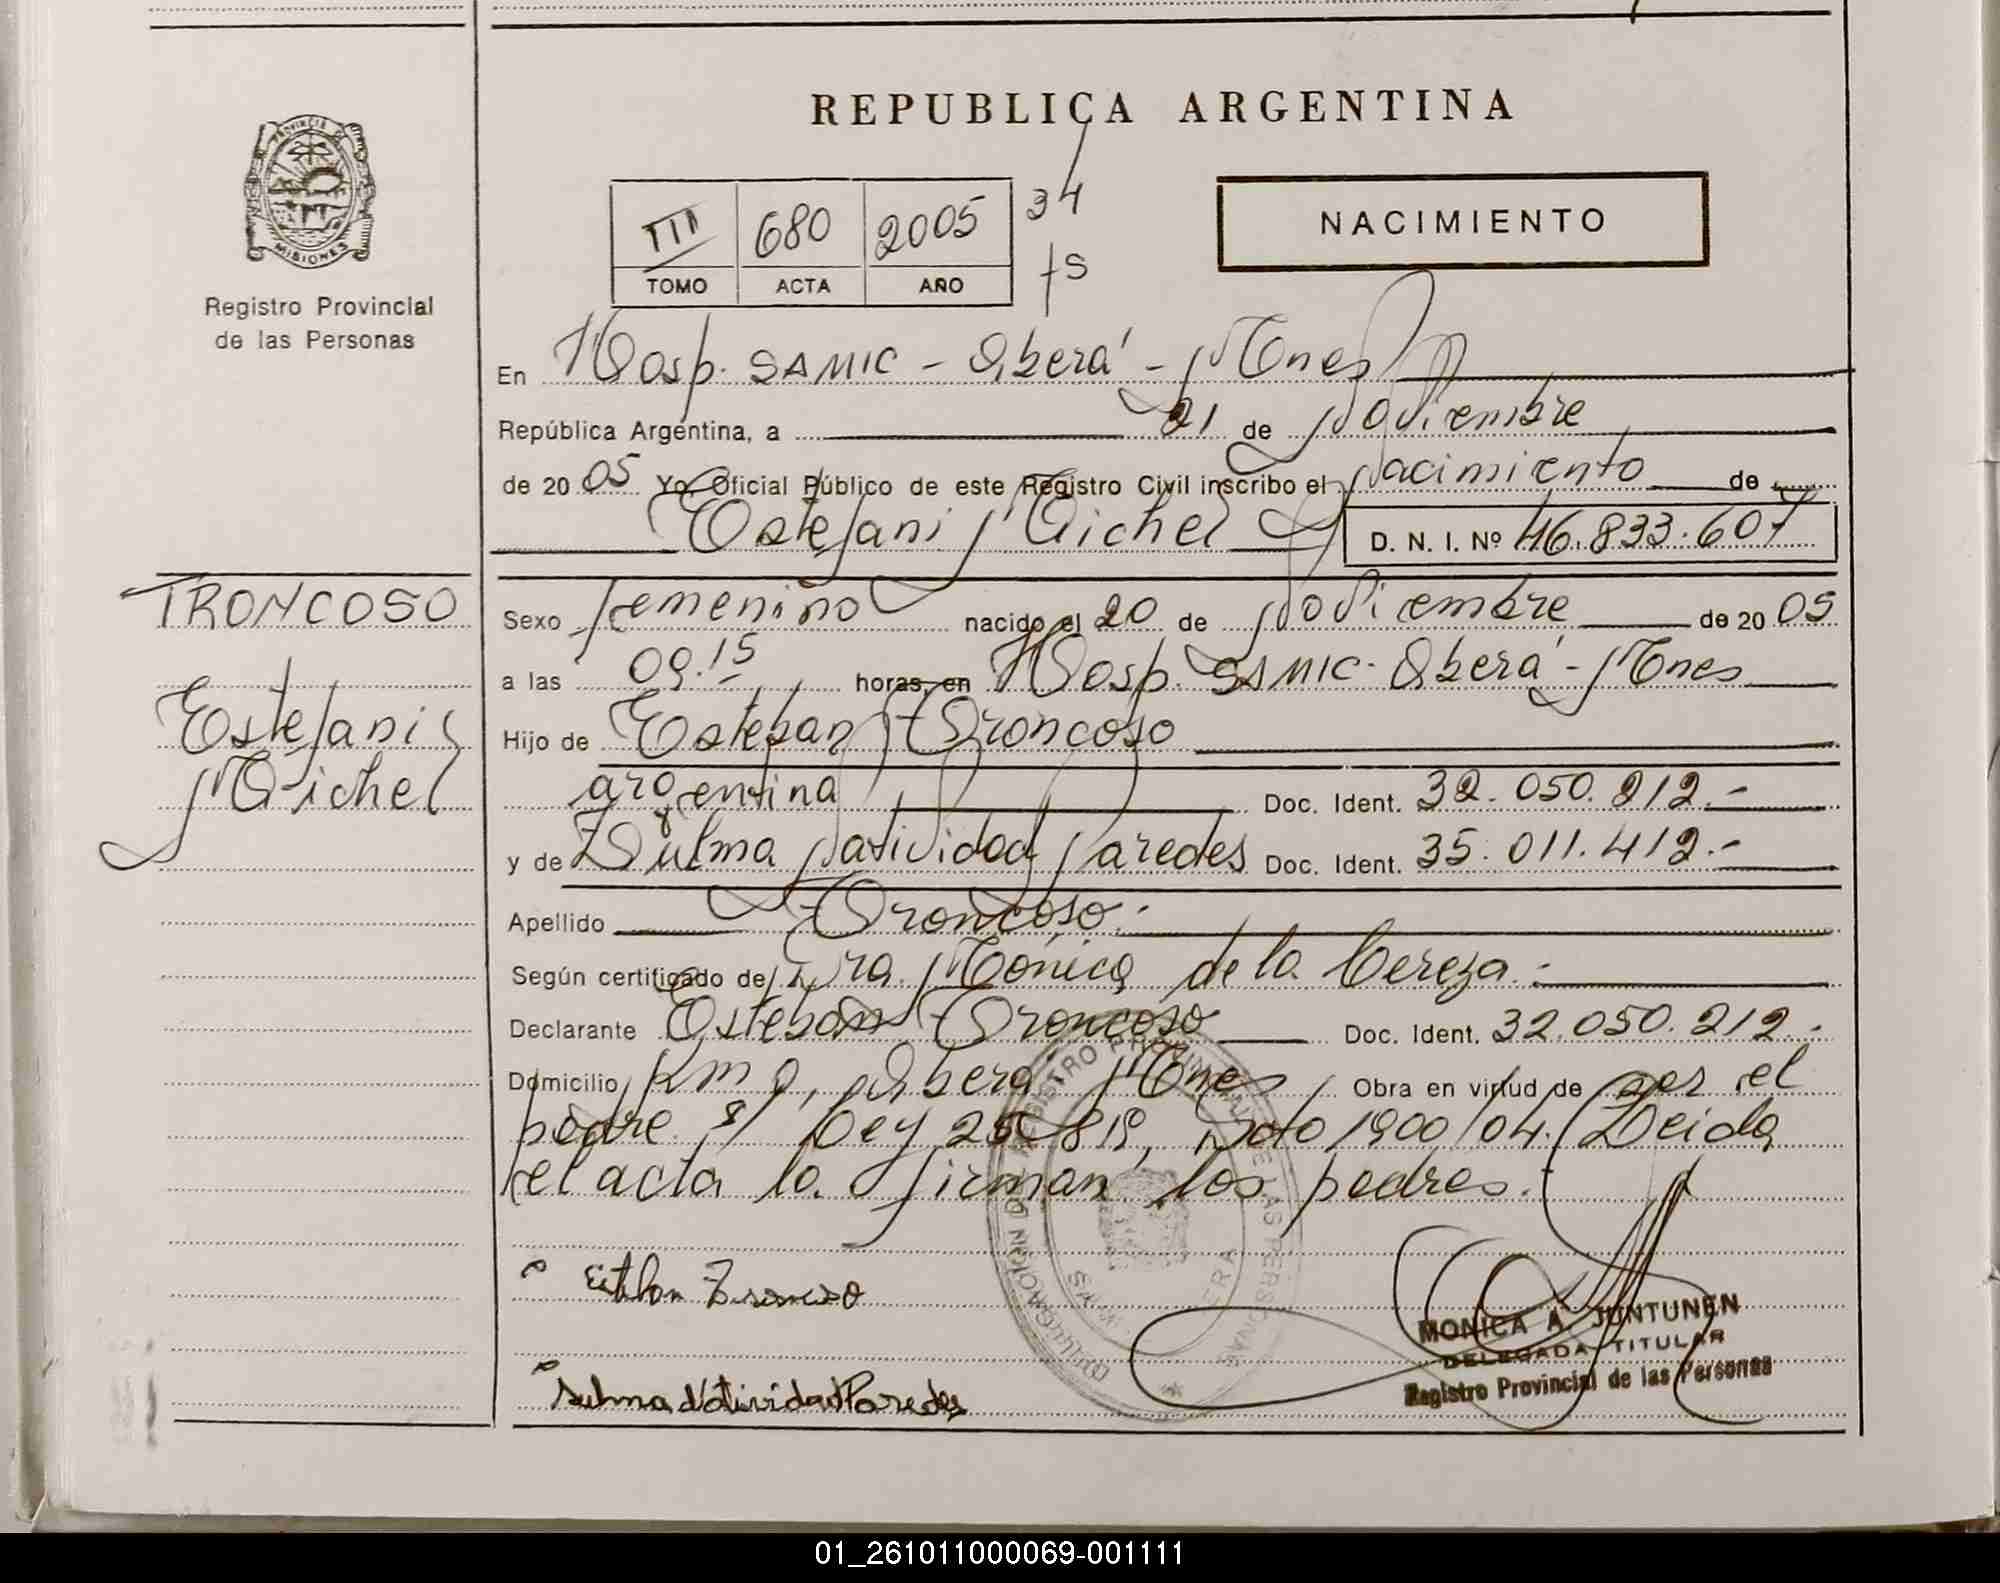 REPUBLICA ARGENTINA
PROVINCIA DE
MISIONES
Registro Provincial
de las Personas
III 680 2005
TOMO ACTA AÑO
34
75
NACIMIENTO
En Hosp. SAMIC - Oberá - Mnes
República Argentina, a 21 de Noviembre
de 2005 Yo, Oficial Público de este Registro Civil inscribo el Nacimiento de
Estefani Michel D. N. I. Nº 46.833.607
TRONCOSO
Estefani
Michel
Sexo femenino nacido el 20 de Noviembre de 2005
a las 09.15 horas, en Hosp. SAMIC - Oberá - Mnes
Hijo de Esteban Troncoso
argentina Doc. Ident. 32.050.212.-
y de Zulma Natividad Paredes Doc. Ident. 35.011.412.-
Apellido Troncoso.-
Según certificado de Dra. Mónica de la Cereza.-
Declarante Esteban Troncoso Doc. Ident. 32.050.212.-
Domicilio Km 0, Oberá, Mnes Obra en virtud de ser el
padre s/ Ley 25.819, Dcto 1900/04. Leida
el acta la firman los padres.-
Esteban Troncoso
Sulma Natividad Paredes
MONICA A. JUNTUNEN
DELEGADA TITULAR
Registro Provincial de las Personas
01_261011000069-001111